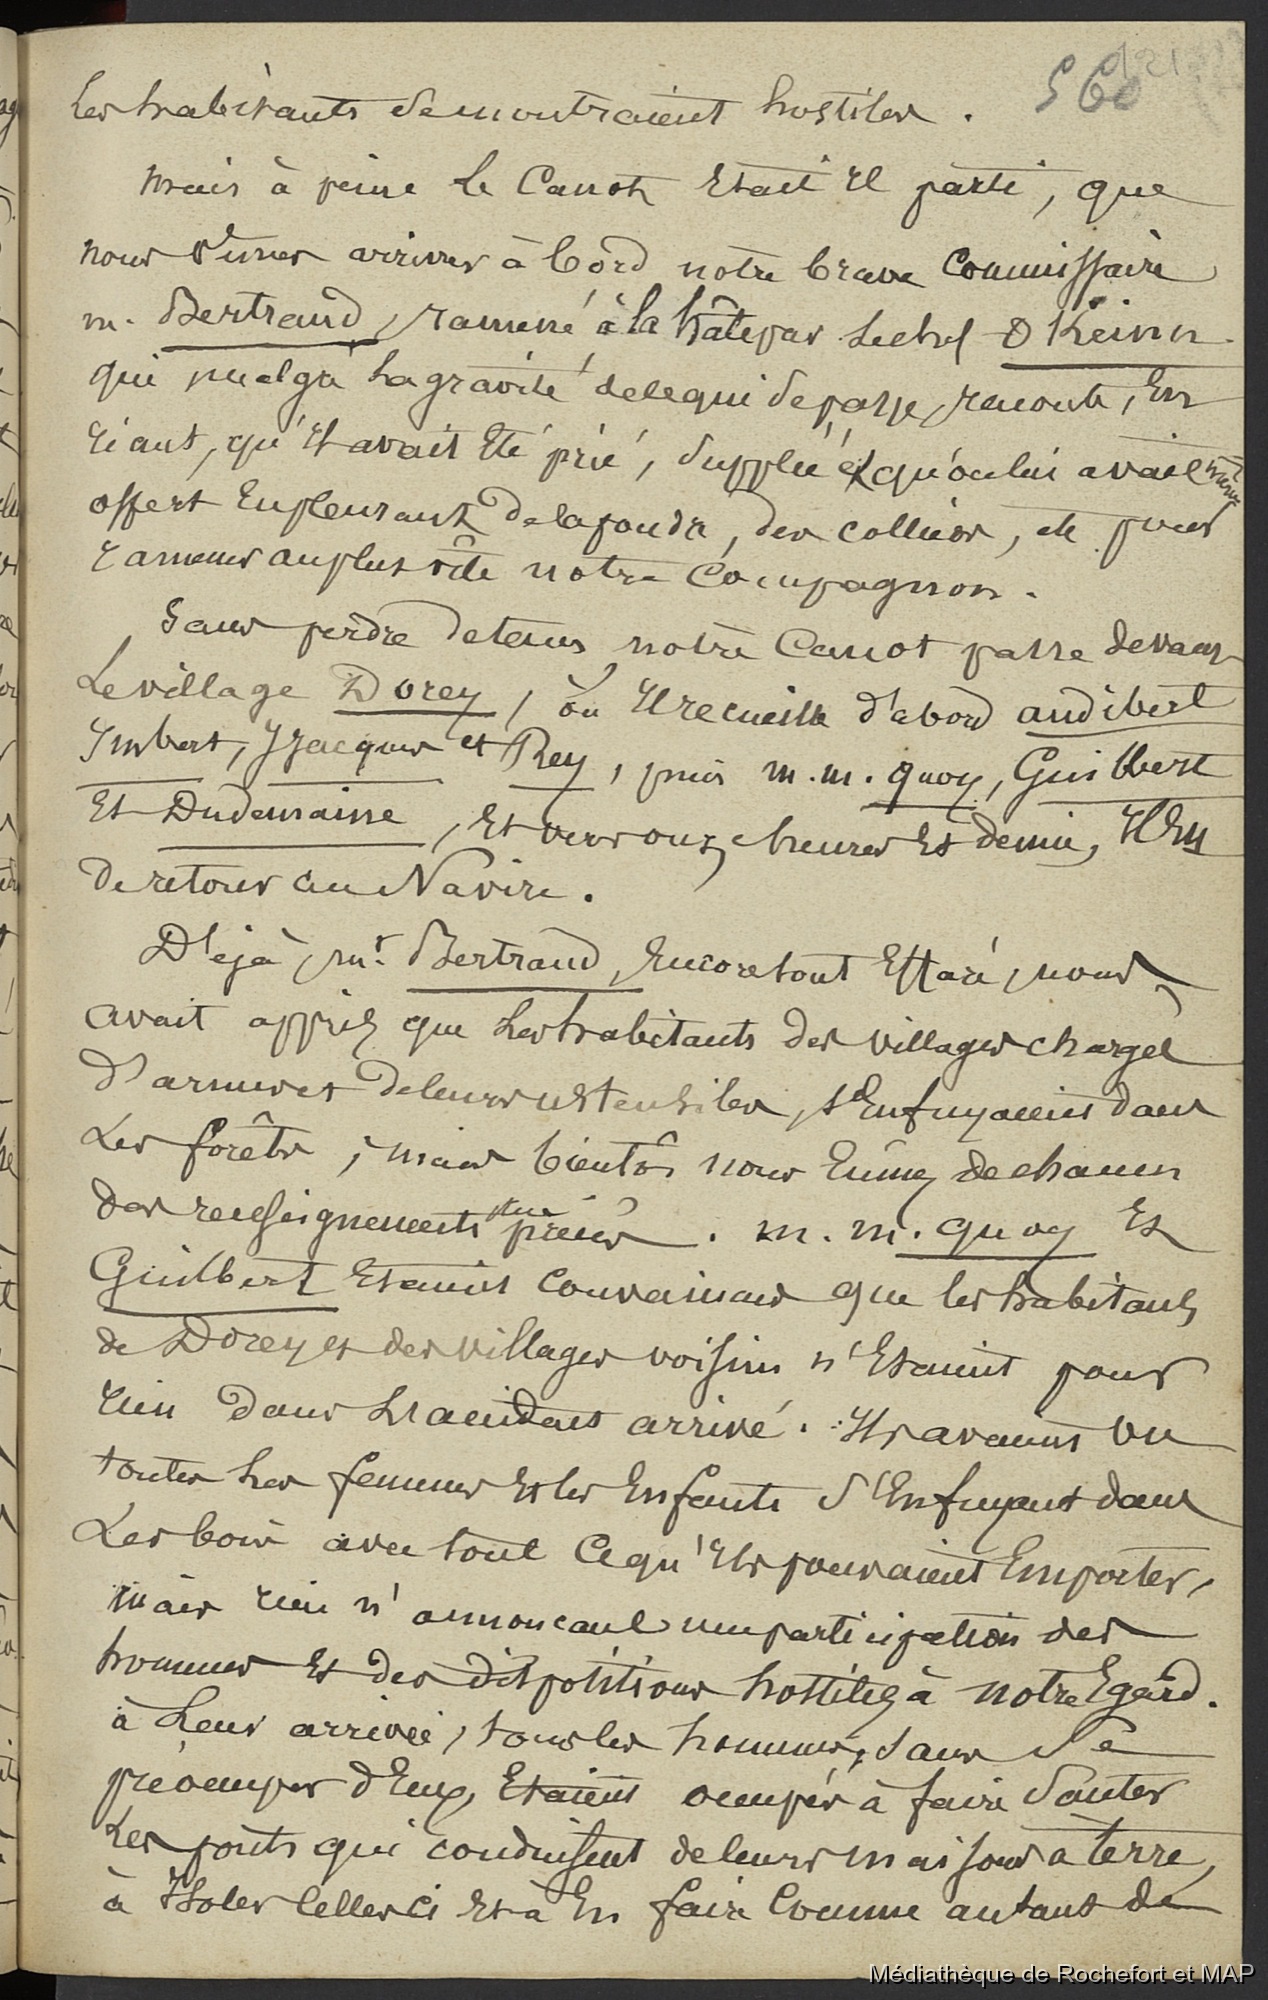 560
les habitants se montraient hostiles.
mais à peine le Canot Etait il parti, que
nous vimes arriver à bord notre brave Commissaire
m. Bertrand, ramené à la hâte par le chef O Keinn
qui malgré la gravité de ce qui se passe, raconte, En
riant, qu'il avait Eté prié, supplié & qu'on lui avait même
offert En pleurant de la poudre, des colliers, etc pour
ramener au plus vite notre Compagnon.
Sans perdre de tems notre Canot passe devant
Le village Dorey, où Il recueille d'abord audibert
Imbert, Jzacques et Rey, puis m.m. quoy, Guilbert
Et Dudemaine, Et vers onze heures Et demie, Il En
de retour au Navire.
Déjà, mr. Bertrand, Encore tout Effaré, nous
avait appris que Les habitants des villages chargés
d'armes et de leurs ustensiles, s'Enfuyaient dans
Les forêts ; mais bientôt nous Eûmes de chacun
des renseignements plus précis. m.m. quoy Et
Guilbert Etaient convaincus que les habitants
de Dorey et des villages voisins n'Etaient pour
rien dans L'accident arrivé. Ils avaient vu
toutes Les femmes Et les Enfants s'Enfuyant dans
Les bois avec tout Ce qu'Ils pouvaient Emporter,
mais rien n'annonçant une participation des
hommes Et des dispositions hostiles à notre Egard.
à Leur arrivée, tous les hommes, sans se
préoccuper d'Eux, Etaient occupés à faire Sauter
Les ponts qui conduisent de leurs maisons a terre,
à Isoler Celles ci Et à En faire Comme autant de
Médiathèque de Rochefort et MAP